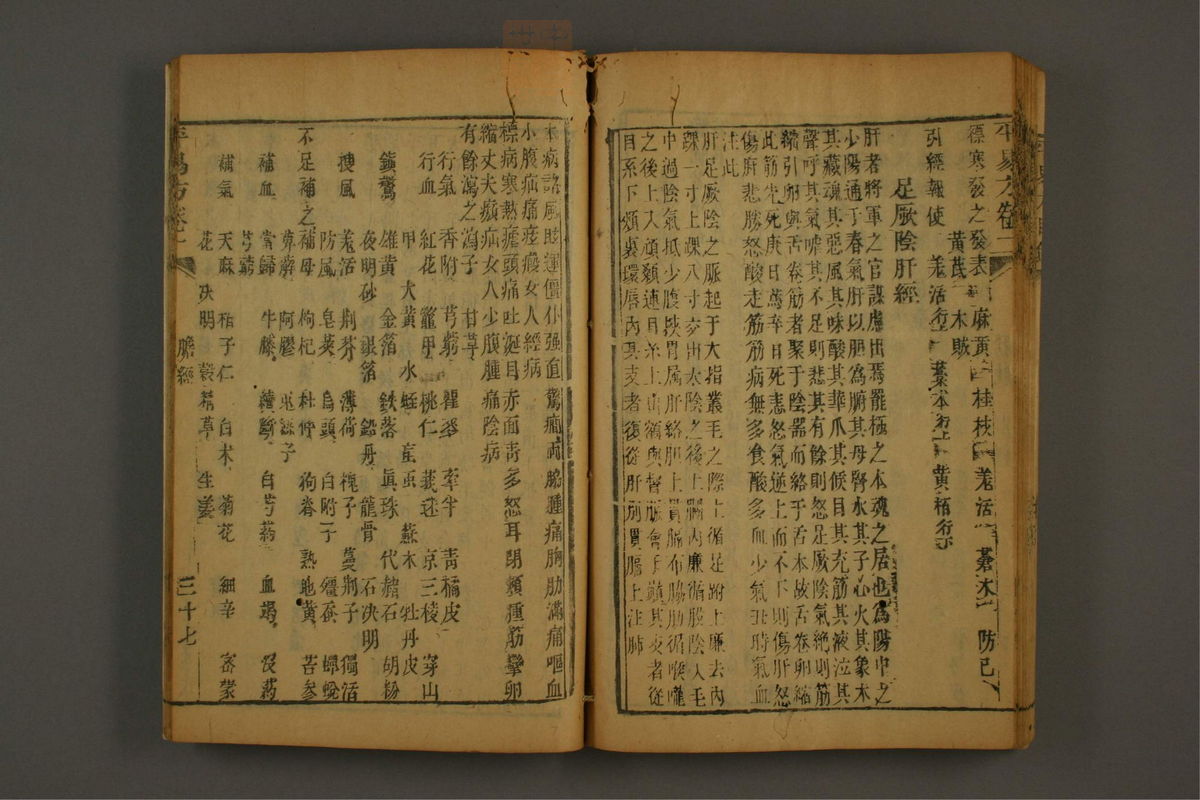 平易方卷二
標寒發之發表 麻黃 桂枝 羗活 蒼术 防己
黃芪 木賊
引經報使 羗活 藁本 黃栢
足厥陰肝經
肝者將軍之官謀慮出焉罷極之本魂之居也為陽中之
少陽通于春氣肝以胆為腑其母腎水其子心火其象木
其藏魂其惡風其味酸其華爪其候目其充筋其液泣其
聲呼其氣嘘其不足則悲其有餘則怒足厥陰氣絶則筋
縮引卵與舌卷筋者聚于陰器而絡于舌本故舌卷卵縮
此筋先死庚日篤辛日死悲怒氣逆上而不下則傷肝怒
傷肝悲勝怒酸走筋筋病無多食酸多血少氣丑時氣血
注此
肝足厥陰之脈起于大指叢毛之際上循足跗上廉去內
踝一寸上踝八寸交出太陰之後上膕內廉循股陰入毛
中過陰氣抵少腹挾胃属肝絡胆上貫膈布脇肋循喉嚨
之後上入頏顙連目系上出額與督脈會于巔其支者從
目系下頰裏環唇內其支者復從肝別貫膈上注肺
本病諸風眩運僵仆强直驚癎兩脇腫痛胸肋滿痛嘔血
小腹疝痛痃癥女人經病
標病寒熱瘧頭痛吐涎目赤面青多怒耳閉頰腫筋攣卵
縮丈夫㿗疝女人少腹腫痛陰病
有餘瀉之瀉子 甘草
行氣香附 芎藭 瞿麥 牽牛 青橘皮
行血 紅花 鼈甲 桃仁 莪朮 京三稜 穿山
甲 大黃 水蛭 䖟虫 蘇木 牡丹皮
鎮驚 雄黃 金箔 鉄落 眞珠 代赭石 胡粉
夜明砂 銀箔 鉛丹 龍骨 石决明
搜風 羗活 荆芥 薄荷 槐子 蔓荆子 獨活
防風 皂莢 烏頭 白附子 殭蚕 蟬蛻
不足補之補母 枸杞 杜仲 狗脊 熟地黃 苦參
萆薢 阿膠 兎絲子
補血 當歸 牛膝 續斷 白芍葯 血竭 沒葯
芎藭
補氣 天麻 栢子仁 白术 菊花 細辛 密蒙
花 决明 穀精草 生姜
平易方卷二 膽經 三十七